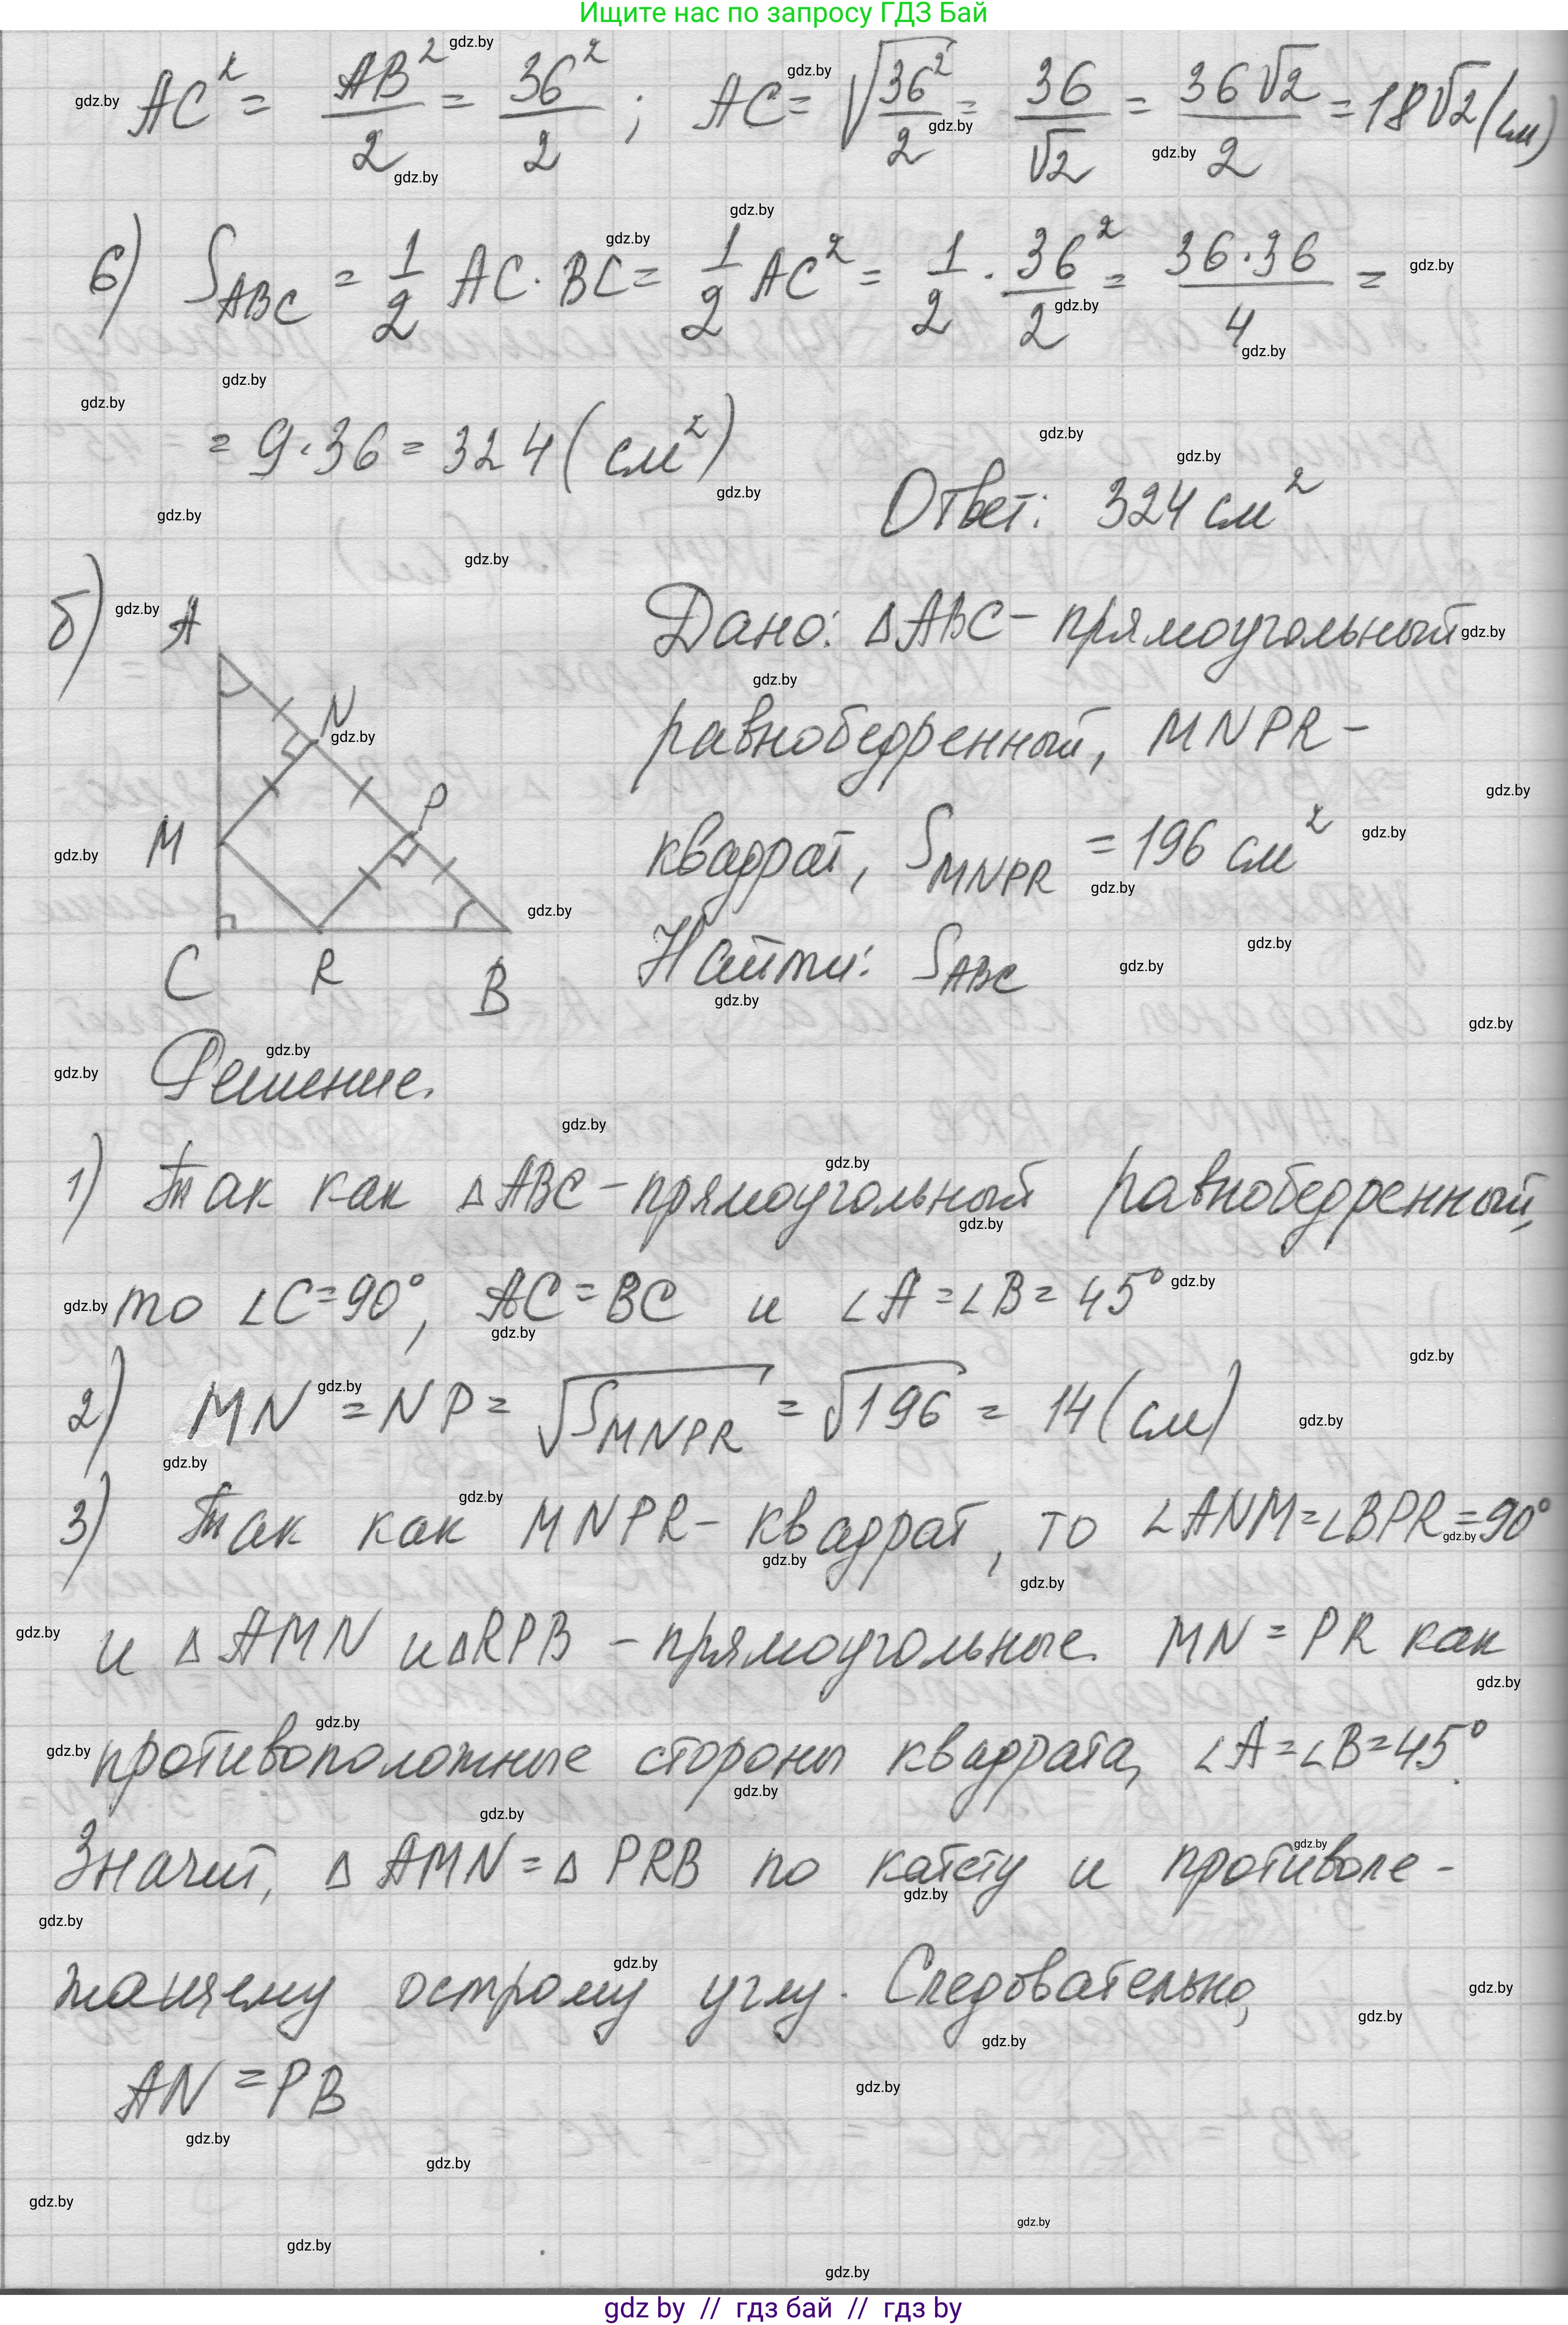 Ищите нас по запросу ГДЗ Бай
AC² = AB²/2 = 36²/2 ; AC = √(36²/2) = 36/√2 = 36√2/2 = 18√2 (см)
6) S_ABC = 1/2 AC · BC = 1/2 AC² = 1/2 · 36²/2 = 36·36/4 =
= 9·36 = 324 (см²)
Ответ: 324 см²
б)
A
N
M
P
C R B
Дано: ΔABC – прямоугольный
равнобедренный, MNPR –
квадрат, S_MNPR = 196 см²
Найти: S_ABC
Решение.
1) Так как ΔABC – прямоугольный равнобедренный,
то ∠C = 90°, AC = BC и ∠A = ∠B = 45°
2) MN = NP = √S_MNPR = √196 = 14 (см)
3) Так как MNPR – квадрат, то ∠ANM = ∠BPR = 90°
и Δ AMN и Δ RPB – прямоугольные. MN = PR как
противоположные стороны квадрата, ∠A = ∠B = 45°.
Значит, Δ AMN = Δ PRB по катету и противоле-
жащему острому углу. Следовательно,
AN = PB
gdz.by
gdz by // гдз бай // гдз by